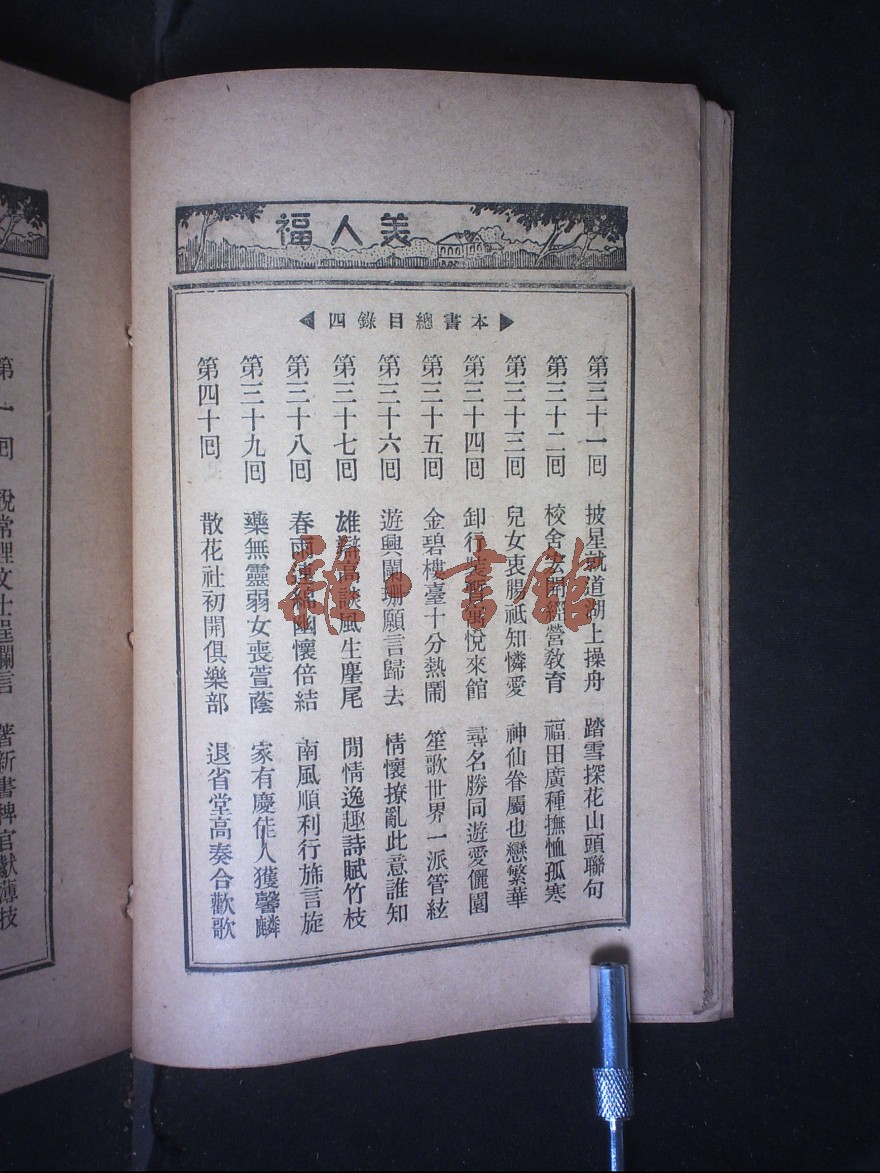 美人福
本書總目錄四
第三十一回 披星就道湖上操舟 踏雪探花山頭聯句
第三十二回 校舍宏開經營教育 福田廣種撫恤孤寒
第三十三回 兒女衷腸祇知憐愛 神仙眷屬也戀繁華
第三十四回 卸行裝暫寓悅來館 尋名勝同遊愛儷園
第三十五回 金碧樓臺十分熱鬧 笙歌世界一派管絃
第三十六回 遊興闌珊願言歸去 情懷撩亂此意誰知
第三十七回 雄辯高談風生麈尾 閒情逸趣詩賦竹枝
第三十八回 春雨連綿幽懷倍結 南風順利行旆言旋
第三十九回 藥無靈弱女喪萱蔭 家有慶佳人獲馨麟
第四十回 散花社初開俱樂部 退省堂高奏合歡歌
第一回 說常理文士逞瀾言 著新書稗官獻薄技
雅·書館